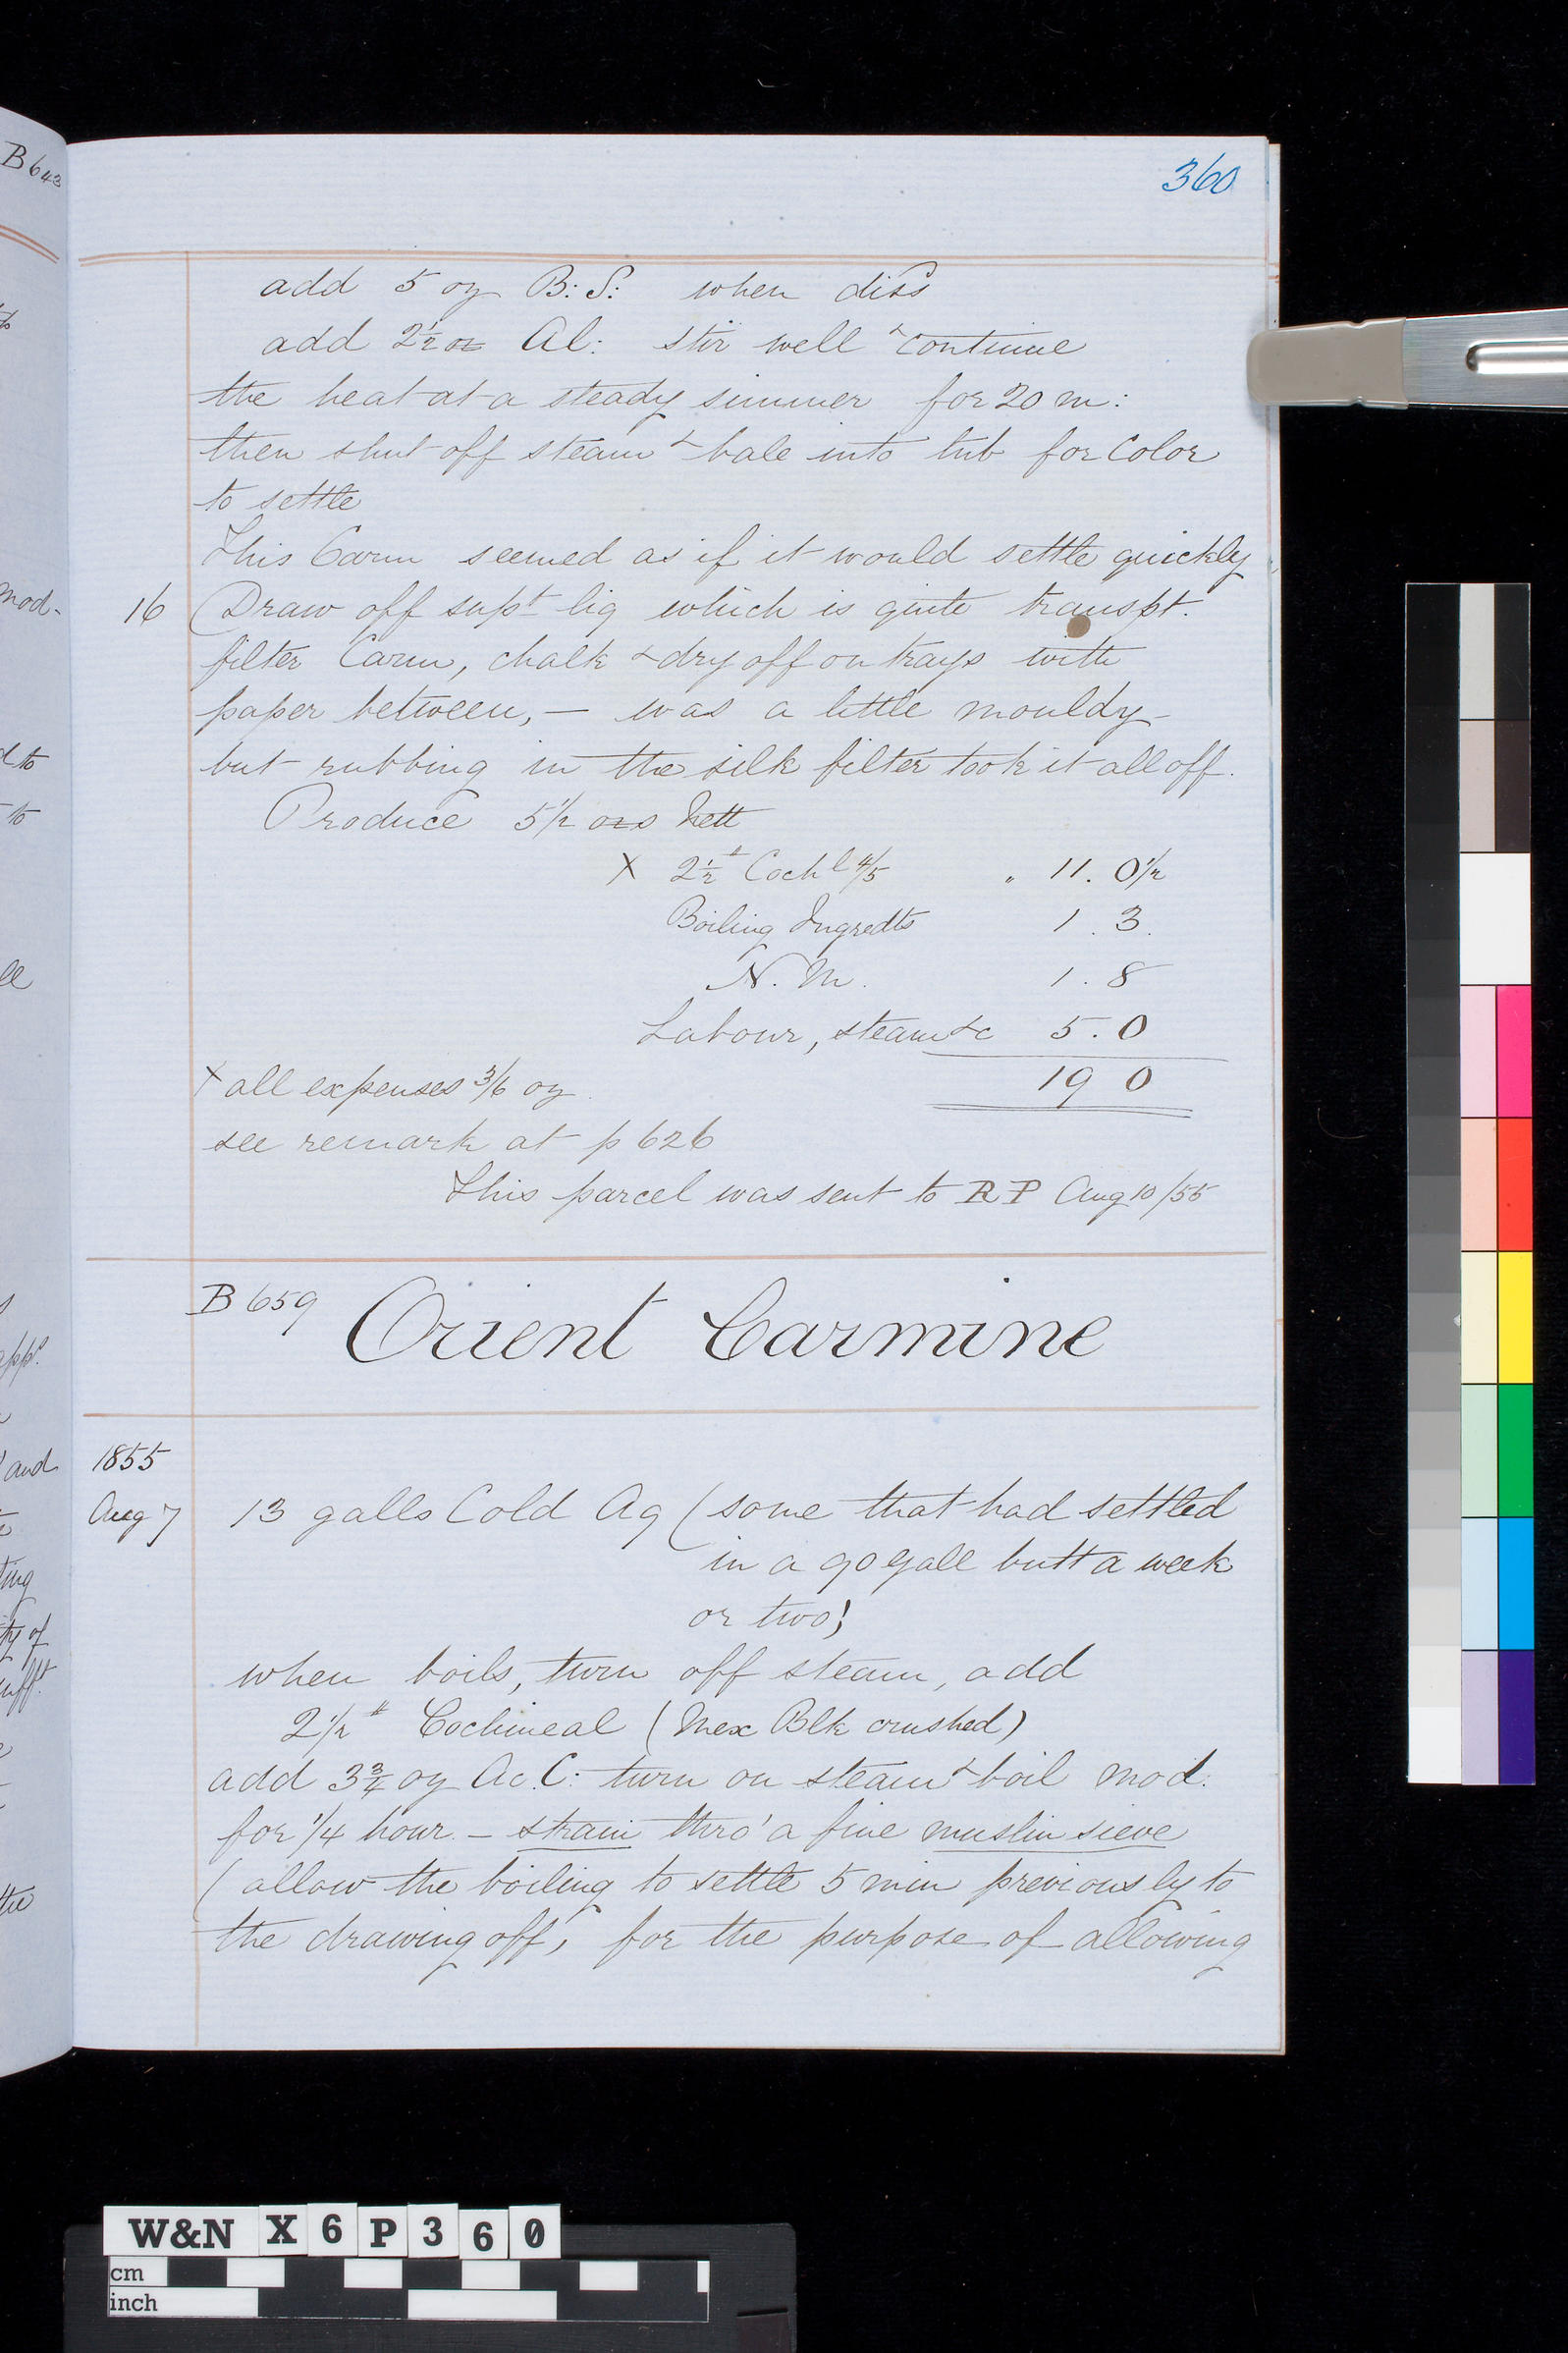 B 643
360
add 5 oz B: S: when diss
add 2½ oz Al: stir well & continue
the heat at a steady simmer for 20 m:
then shut off steam & bale into tub for Color
to settle
This Carm seemed as if it would settle quickly
16 Draw off supt liq which is quite transpt.
filter Carm, chalk & dry off on trays with
paper between, — was a little mouldy
but rubbing in the silk filter took it all off.
Produce 5½ ozs Nett
X 2½ # Cochl 4/5 " 11. 0½
Boiling Ingredts 1 . 3.
N. M. 1 . 8
Labour, steam &c 5 . 0
X all expenses 3/6 oz. 19 0
see remark at p 626
This parcel was sent to RP Aug 10/55
B 659 Orient Carmine
1855
Aug 7 13 galls Cold Aq (some that had settled
in a 90 gall butt a week
or two)
when boils, turn off steam, add
2½ # Cochineal (Mex Blk crushed)
add 3¾ oz Ac. C: turn on steam & boil mod:
for ¼ hour – strain thro' a fine muslin sieve
(allow the boiling to settle 5 min previously to
the drawing off, for the purpose of allowing
W&N X6P360
cm
inch